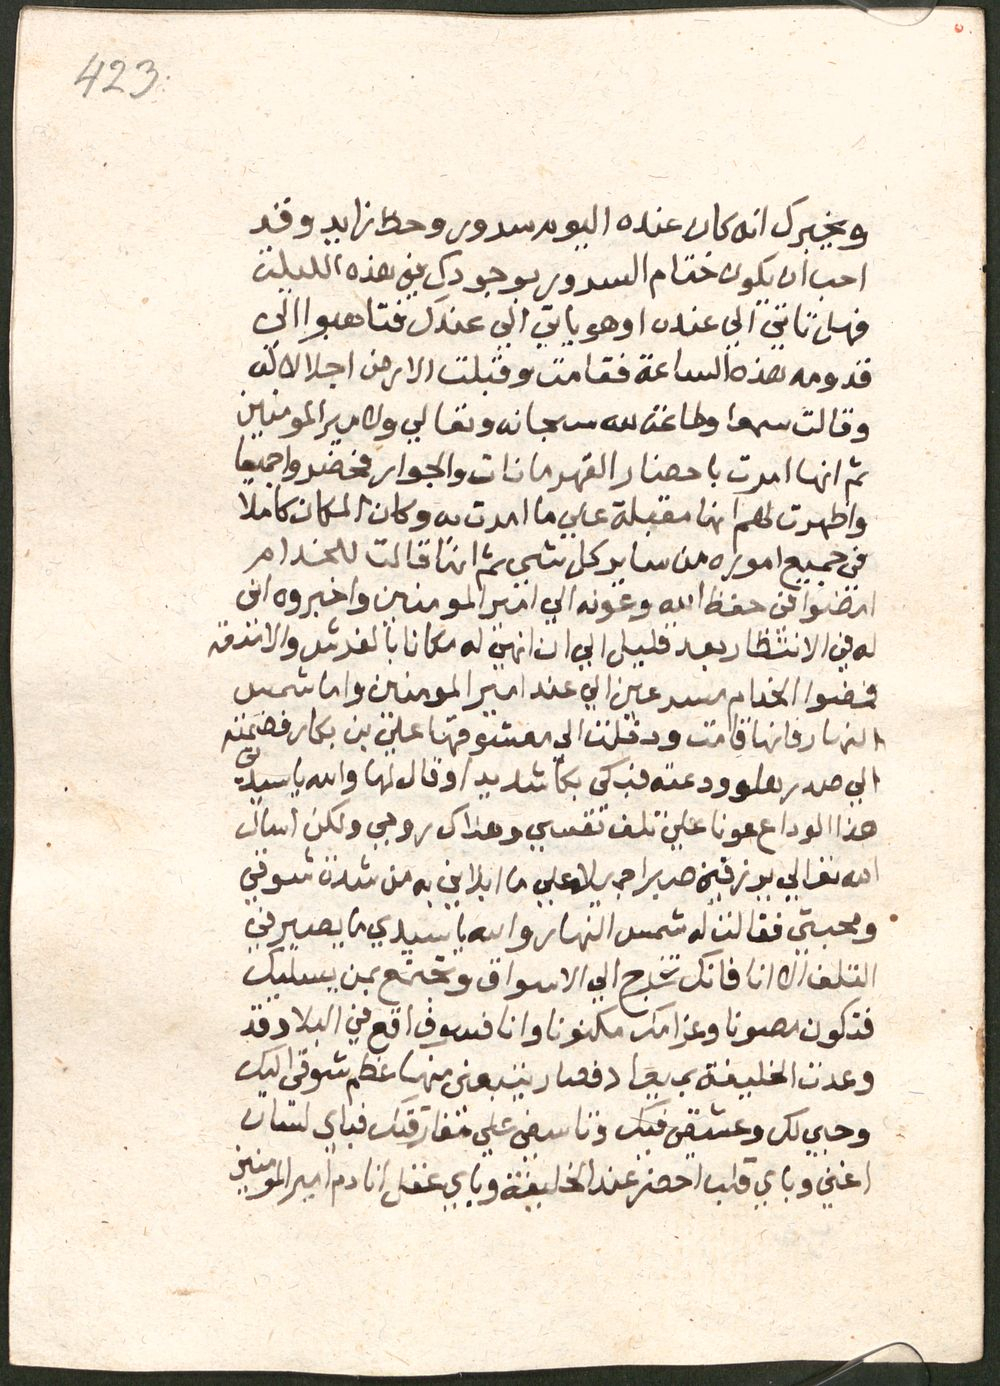 423.
ويخبرك انه كان عنده اليوم سرور وحظ زايد وقد
احب ان يكون ختام السرور بوجودك في هذه الليلة
فهل تاتي الي عنده او هو ياتي الي عندك فتاهبوا الي
قدومه هذه الساعة فقامت وقبلت الارض اجلالا له
وقالت سمعا وطاعة لله سبحانه وتعالي ولامير المومنين
ثم انها امرت باحضار القهرمانات والجوار فحضروا جميعا
واظهرت لهم انها مقبلة علي ما امرت به وكان المكان كاملا
في جميع اموره من ساير كل شي ثم انها قالت للخدام
امضوا في حفظ الله وعونه الي امير المومنين واخبروه اني
له في الانتظار بعد قليل الي ان اهي له مكانا بالفرش والامتعه
فمضوا الخدام مسرعين الي عند امير المومنين واما شمس
النهار فانها قامت ودخلت الي معشوقها علي بن بكار فضمته
الي صدرها وودعته فبكي بكا شديدا وقال لها والله يا سيدتي
هذا الوداع عونا علي تلف نفسي وهلاك روحي ولكن اسال
الله تعالي يرزقني صبرا جميلا علي ما ابلاني به من شدة شوقي
ومحبتي فقالت له شمس النهار والله يا سيدي ما يصير في
التلف الا انا فانك تخرج الي الاسواق وتجتمع بمن يسليك
فتكون مصونا وغرامك مكنونا وانا فسوف اقع في البلا وقد
وعدت الخليفة بميعاد فصار يمنعني منها عظم شوقي اليك
وحبي لك وعشقي فيك وتاسفي علي مفارقتك فباي لسان
اغني وباي قلب احضر عند الخليفة وباي عقل انادم امير المومنين